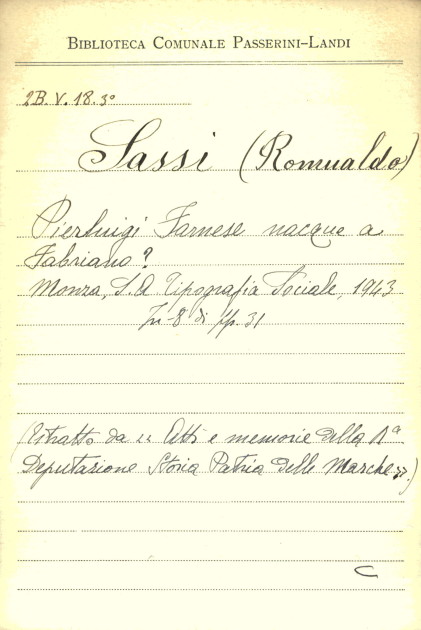 BIBLIOTECA COMUNALE PASSERINI-LANDI
2B.V.18.3°
Sassi (Romualdo)
Pierluigi Farnese nacque a
Fabriano?
Monza, S.A Tipografia Sociale, 1943
In-8° di pp. 31
(Estratto da "Atti e memorie della Rª
Deputazione Storia Patria delle Marche".)
C